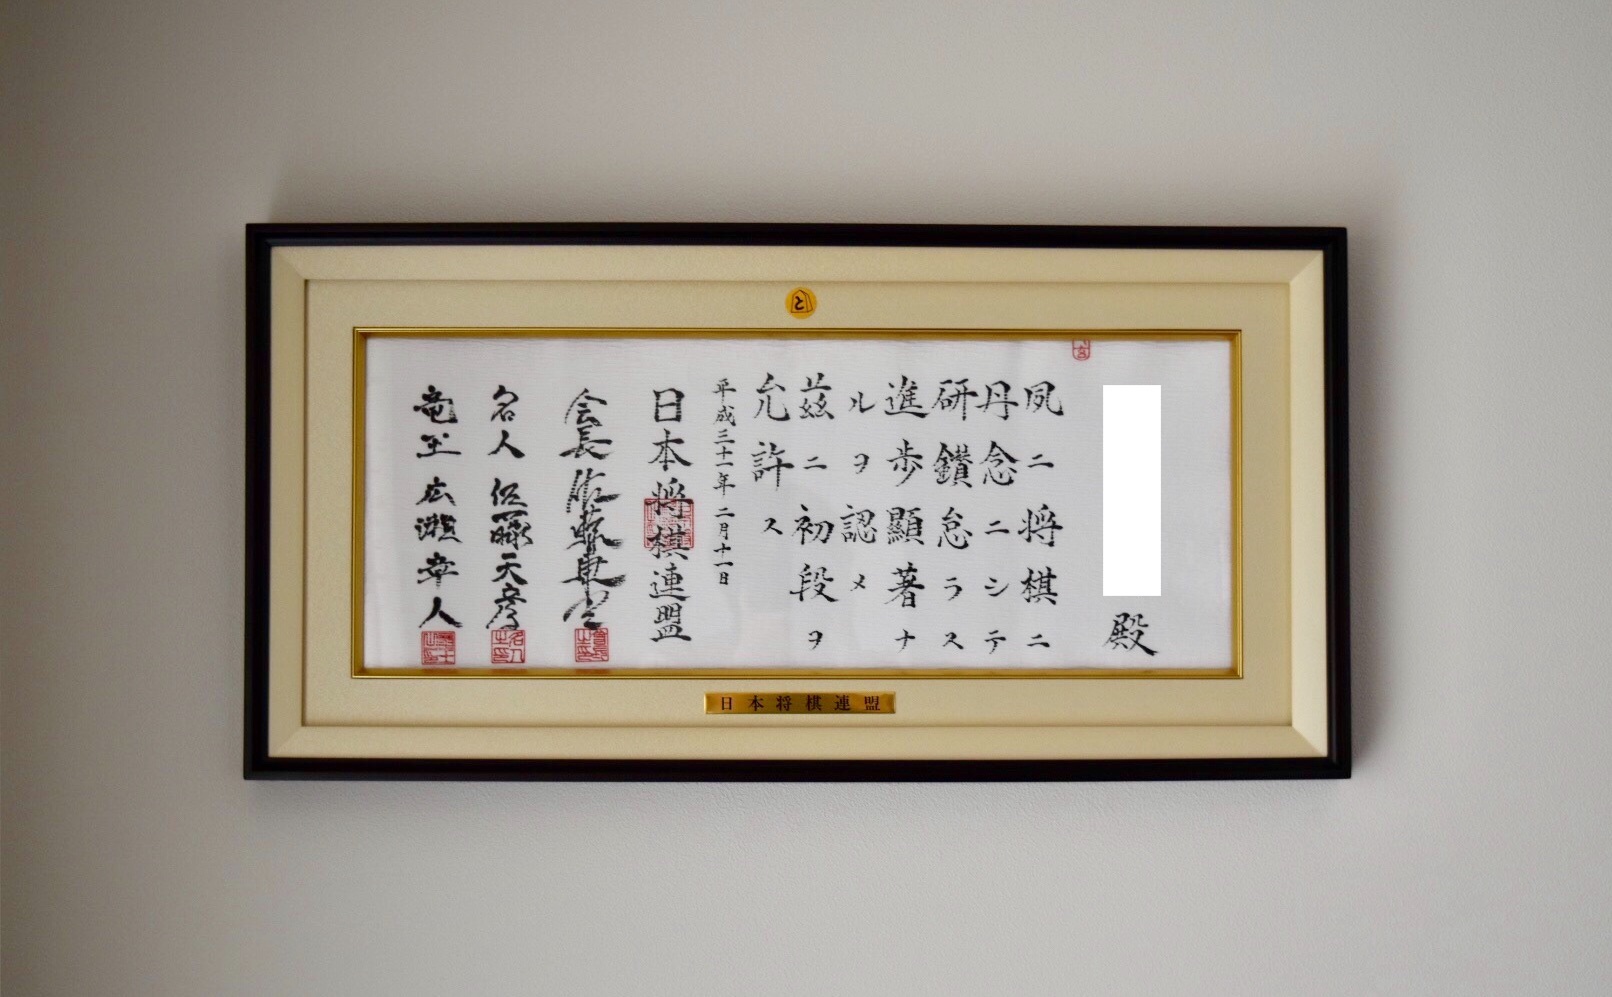 と
殿
夙ニ将棋ニ
丹念ニシテ
研鑽怠ラス
進歩顯著ナ
ルヲ認メ
茲ニ初段ヲ
允許ス
平成三十一年二月十一日
日本将棋連盟
会長 佐藤康光
名人 佐藤天彦
竜王 広瀬章人
日本将棋連盟